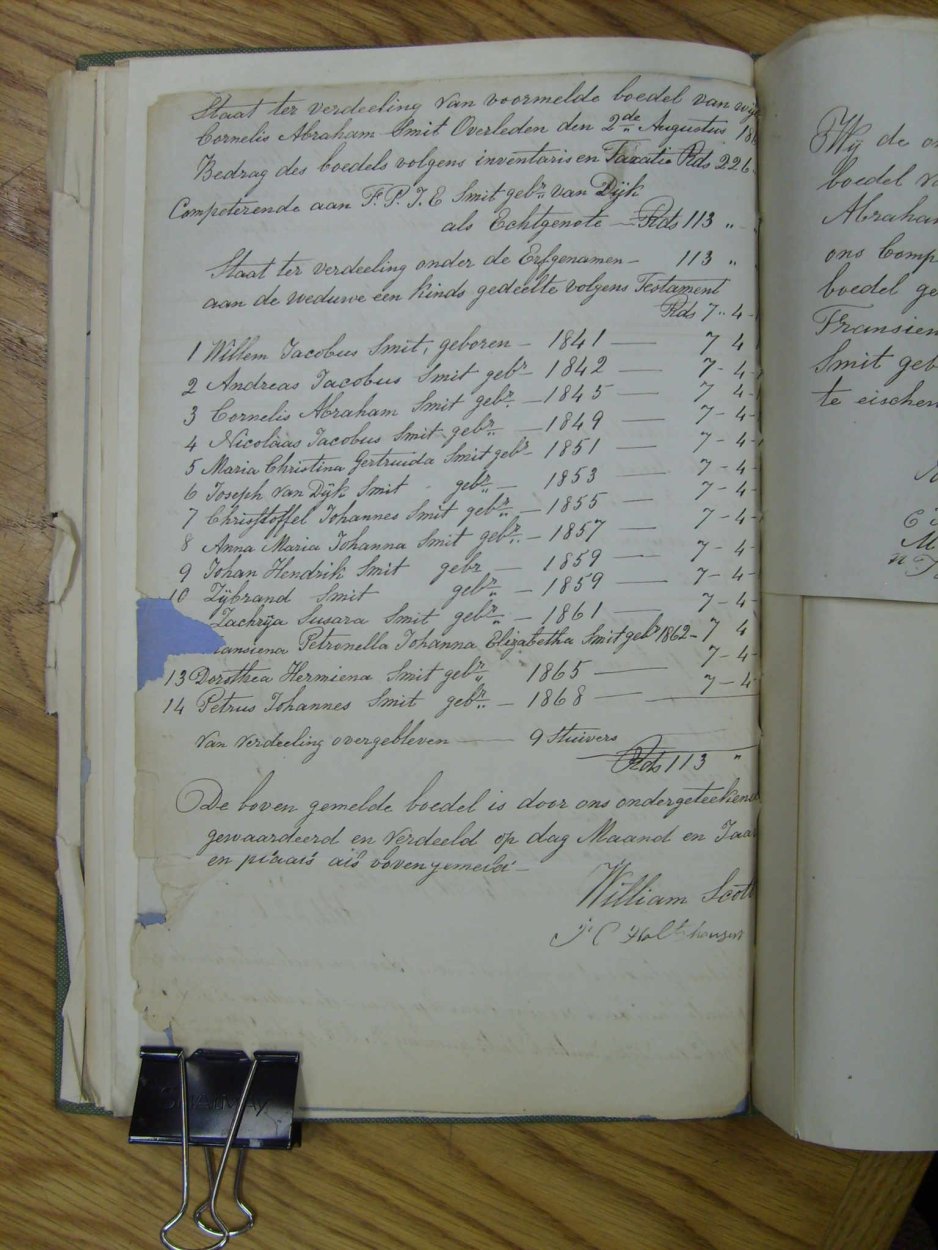 Staat ter verdeeling van voormelde boedel van
Cornelis Abraham Smit Overleden den 2de Augustus
Bedrag des boedels volgens inventaris en Taxatie Rds 226
Competerende aan F. P. J. E Smit gebr van Dÿk
als Echtgenote — Rds 113 "
Staat ter verdeeling onder de Erfgenamen — 113 "
aan de weduwe een kinds gedeelte volgens Testament
Rds 7 .. 4 -
1 Willem Jacobus Smit, geboren — 1841 — 7 4
2 Andreas Jacobus Smit gebr — 1842 — 7 - 4 -
3 Cornelis Abraham Smit gebr. — 1845 — 7 - 4 -
4 Nicolaas Jacobus Smit gebr — 1849 — 7 - 4 -
5 Maria Christina Gertruida Smit gebr — 1851 — 7 - 4 -
6 Joseph van Dÿk Smit gebr — 1853 — 7 - 4 -
7 Christoffel Johannes Smit gebr — 1855 — 7 - 4 -
8 Anna Maria Johanna Smit gebr — 1857 — 7 - 4 -
9 Johan Hendrik Smit gebr 1859 — 7 - 4 -
10 Zÿbrand Smit gebr — 1859 — 7 - 4 -
Zachrÿa Susara Smit gebr — 1861 — 7 - 4
ansiena Petronella Johanna Elizabetha Smit gebr 1862 - 7 4
13 Dorothea Hermiena Smit gebr 1865 — 7 - 4 -
14 Petrus Johannes Smit gebr — 1868 — 7 - 4
Van Verdeeling overgebleven — 9 Stuivers
Rds 113 "
De boven gemelde boedel is door ons ondergeteekend
gewaardeerd en Verdeeld op dag Maand en Jaar
en plaats als bovengemeld —
William Scott
J C Holtzhausen
Wij de
boedel
Abraham
ons Comp
boedel ge
Fransien
Smit geb
te eischen